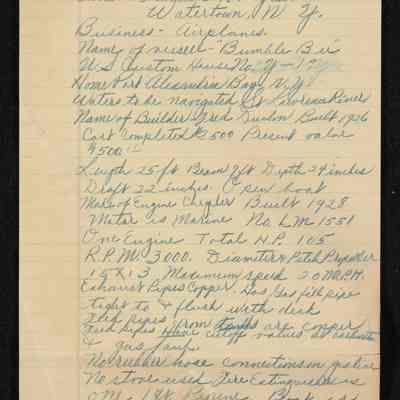 Watertown, N. Y.
Business - Airplanes.
Name of vessel - "Bumble Bee"
U.S. Custom House No.
Home Port Alexandria Bay, N.Y.
Waters to be navigated St Lawrence River
Name of Builder Fred Built 1926
Cost Completed $2500 Present value
$500.00
Length 25 ft Beam 7 ft Depth 29 inches
Draft 22 inches. Open boat
Make of Engine Chrysler Built 1928
Motor is Marine No. L.M. 1551
One Engine Total H.P. 105
R.P.M. 3000. Diameter & Pitch Propeller
15 X 13 Maximum speed 20 M.P.H.
Exhaust Pipes Copper. Has Gas fill pipe
tight to & flush with deck
Feed pipes from tanks are copper
Feed pipes have cutoff valves at carburetor
& gas tank.
No rubber hose connections in gas line
No stove used. Fire Extinguisher is
One 1 Qt. Pyrene